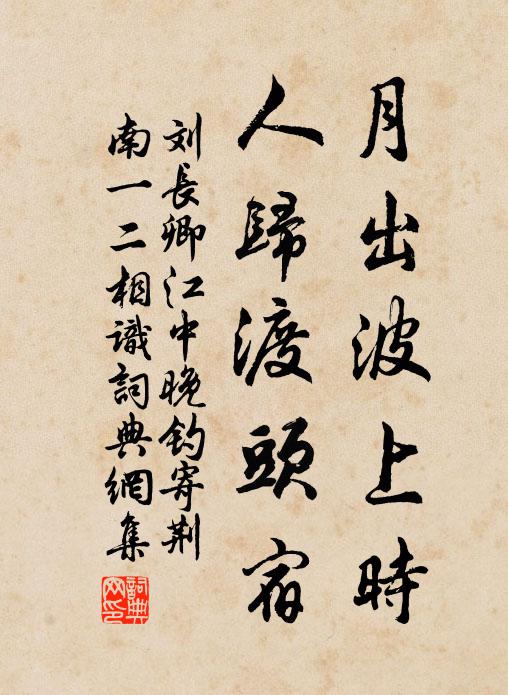 月出波上時
人歸渡頭宿
刘長卿江中晚釣寄荆
南一二相識詞典網集
詞典网印